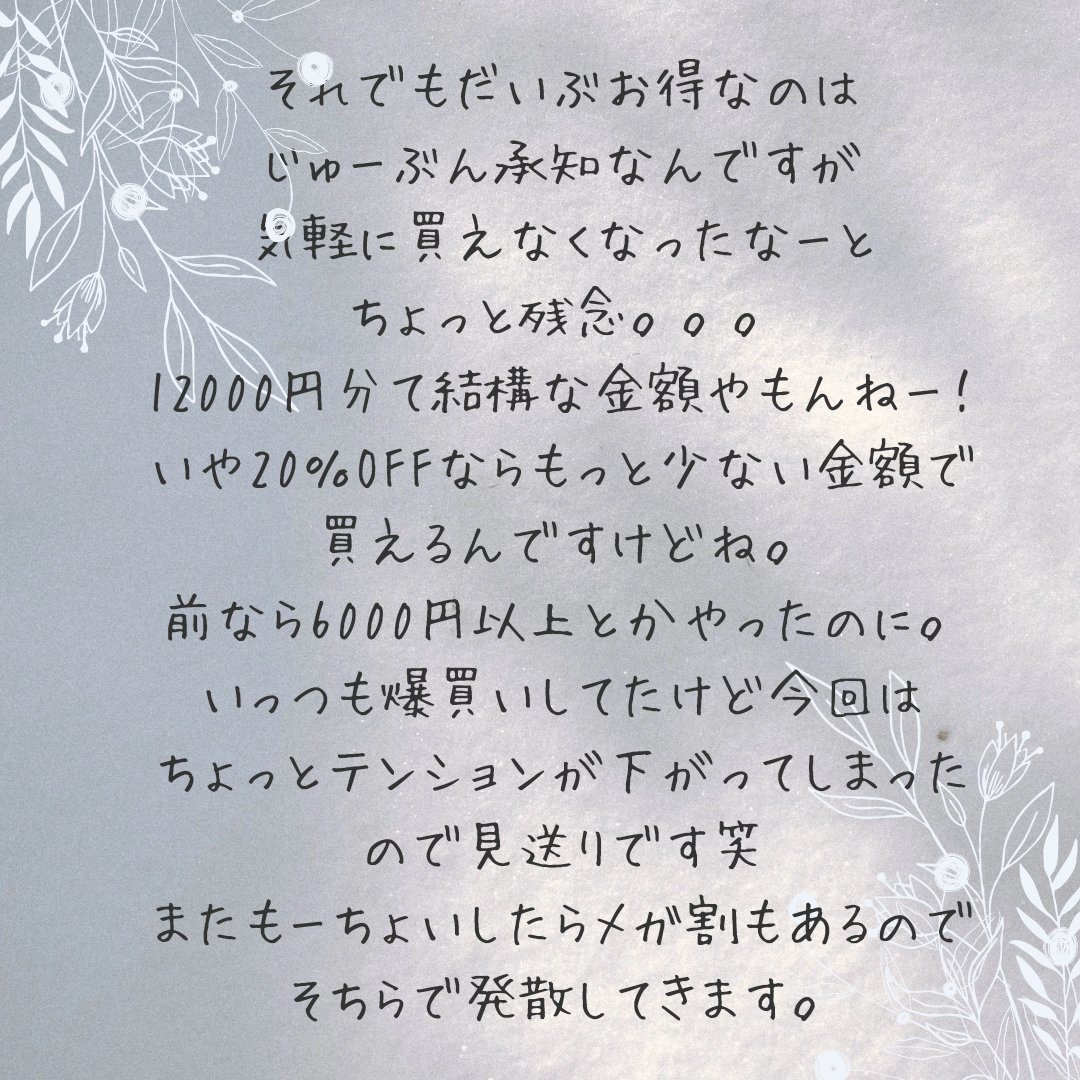 それでもだいぶお得なのは
じゅーぶん承知なんですが
気軽に買えなくなったなーと
ちょっと残念。。。
12000円分て結構な金額やもんねー！
いや20%OFFならもっと少ない金額で
買えるんですけどね。
前なら6000円以上とかやったのに。
いっつも爆買いしてたけど今回は
ちょっとテンションが下がってしまった
ので見送りです笑
またもーちょいしたらメガ割もあるので
そちらで発散してきます。